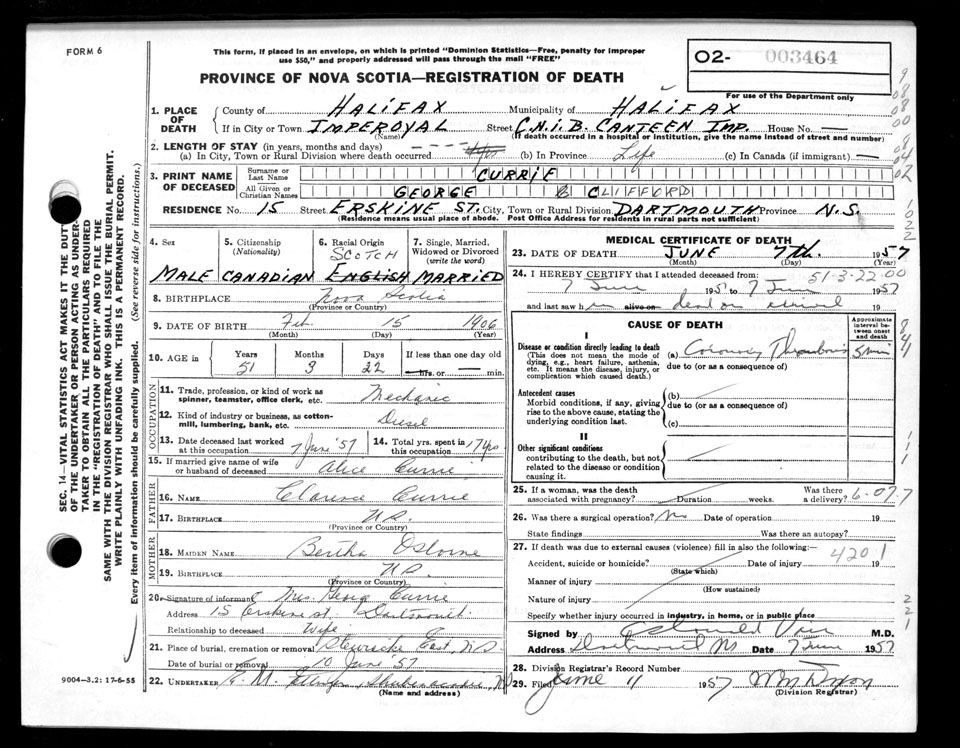 FORM 6
This form, if placed in an envelope, on which is printed "Dominion Statistics—Free, penalty for improper
use $50," and properly addressed will pass through the mail "FREE"
PROVINCE OF NOVA SCOTIA—REGISTRATION OF DEATH
O2- 003464
For use of the Department only
1. PLACE OF DEATH
County of HALIFAX Municipality of HALIFAX
If in City or Town IMPEROYAL Street C.N.I.B. CANTEEN IMP. House No. —
(Name) (If death occurred in a hospital or institution, give the name instead of street and number)
2. LENGTH OF STAY (in years, months and days)
(a) In City, Town or Rural Division where death occurred (b) In Province Life (c) In Canada (if immigrant) —
3. PRINT NAME OF DECEASED
Surname or Last Name CURRIE
All Given or Christian Names GEORGE CLIFFORD
RESIDENCE No. 15 Street ERSKINE ST. City, Town or Rural Division DARTMOUTH Province N.S.
(Residence means usual place of abode. Post Office address for residents in rural parts not sufficient)
4. Sex
MALE
5. Citizenship (Nationality)
CANADIAN
6. Racial Origin
SCOTCH
ENGLISH
7. Single, Married, Widowed or Divorced (write the word)
MARRIED
8. BIRTHPLACE Nova Scotia
(Province or Country)
9. DATE OF BIRTH Feb. 15 1906
(Month) (Day) (Year)
10. AGE in
Years Months Days If less than one day
51 3 22 hrs. or min.
OCCUPATION
11. Trade, profession, or kind of work as spinner, teamster, office clerk, etc. Mechanic
12. Kind of industry or business, as cotton-mill, lumbering, bank, etc. Diesel
13. Date deceased last worked at this occupation 7 June '57
14. Total yrs. spent in this occupation 17 yrs
15. If married give name of wife or husband of deceased Alice Currie
FATHER
16. NAME Clarence Currie
17. BIRTHPLACE N.S.
(Province or Country)
MOTHER
18. MAIDEN NAME Bertha Osborne
19. BIRTHPLACE N.S.
(Province or Country)
20. Signature of informant Mrs. George Currie
Address 15 Erskine st, Dartmouth
Relationship to deceased Wife
21. Place of burial, cremation or removal Stewiacke East, N.S.
Date of burial or removal 10 June '57
22. UNDERTAKER E. M. Shubenacadie, NS
(Name and address)
MEDICAL CERTIFICATE OF DEATH
23. DATE OF DEATH JUNE 7th. 1957
(Month) (Day) (Year)
24. I HEREBY CERTIFY that I attended deceased from: 51-3-22-00
7 June 1957 to 7 June 1957
and last saw him alive on dead on arrival 19
CAUSE OF DEATH
Approximate interval between onset and death
I
Disease or condition directly leading to death
(This does not mean the mode of dying, e.g., heart failure, asthenia, etc. It means the disease, injury, or complication which caused death.)
(a) Coronary Thrombosis 5 min
due to (or as a consequence of)
Antecedent causes
Morbid conditions, if any, giving rise to the above cause, stating the underlying condition last.
(b)
due to (or as a consequence of)
(c)
II
Other significant conditions
contributing to the death, but not related to the disease or condition causing it.
25. If a woman, was the death associated with pregnancy? Duration weeks. Was there a delivery? 6-07-7
26. Was there a surgical operation? No Date of operation 19
State findings Was there an autopsy?
27. If death was due to external causes (violence) fill in also the following:— 4201
Accident, suicide or homicide? Date of injury 19
(State which)
Manner of injury
(How sustained)
Nature of injury
Specify whether injury occurred in industry, in home, or in public place
Signed by M.D.
Address Dartmouth NS Date 7 June 1957
28. Division Registrar's Record Number
29. Filed June 11 1957
(Division Registrar)
SEC. 14—VITAL STATISTICS ACT MAKES IT THE DUTY
OF THE UNDERTAKER OR PERSON ACTING AS UNDER-
TAKER TO OBTAIN ALL THE PARTICULARS REQUIRED
IN THE "REGISTRATION OF DEATH" AND TO FILE THE
SAME WITH THE DIVISION REGISTRAR WHO SHALL ISSUE THE BURIAL PERMIT.
WRITE PLAINLY WITH UNFADING INK. THIS IS A PERMANENT RECORD.
Every item of information should be carefully supplied. (See reverse side for instructions.)
9004—3.2: 17-6-55